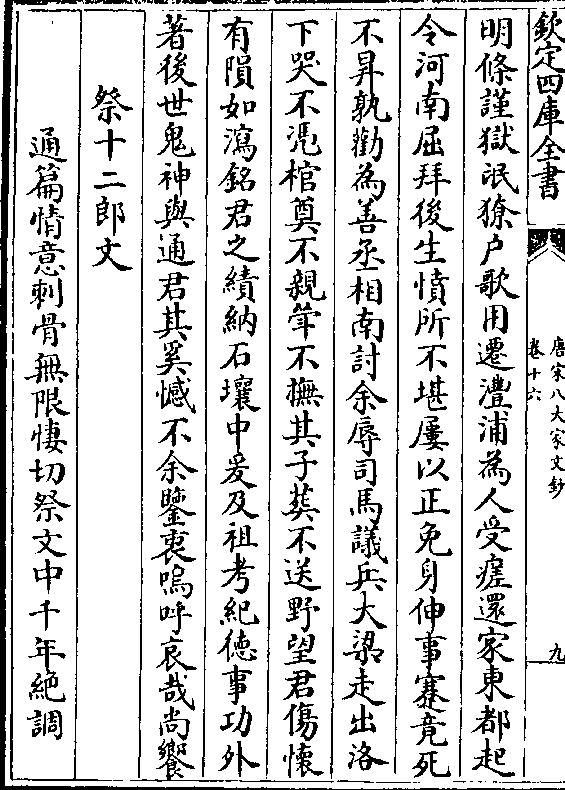 欽定四庫全書
唐宋八大家文鈔
卷十六
九
明條謹獄氓獠户歌用遷澧浦為人受瘥還家東都起
令河南屈拜後生憤所不堪屢以正免身伸事蹇竟死
不昇孰勸為善丞相南討余辱司馬議兵大梁走出洛
下哭不凴棺奠不親斚不撫其子葬不送野望君傷懷
有隕如瀉銘君之績納石壤中爰及祖考紀徳事功外
著後世鬼神與通君其奚憾不余鑒衷嗚呼哀哉尚饗
祭十二郎文
通篇情意刺骨無限悽切祭文中千年絶調